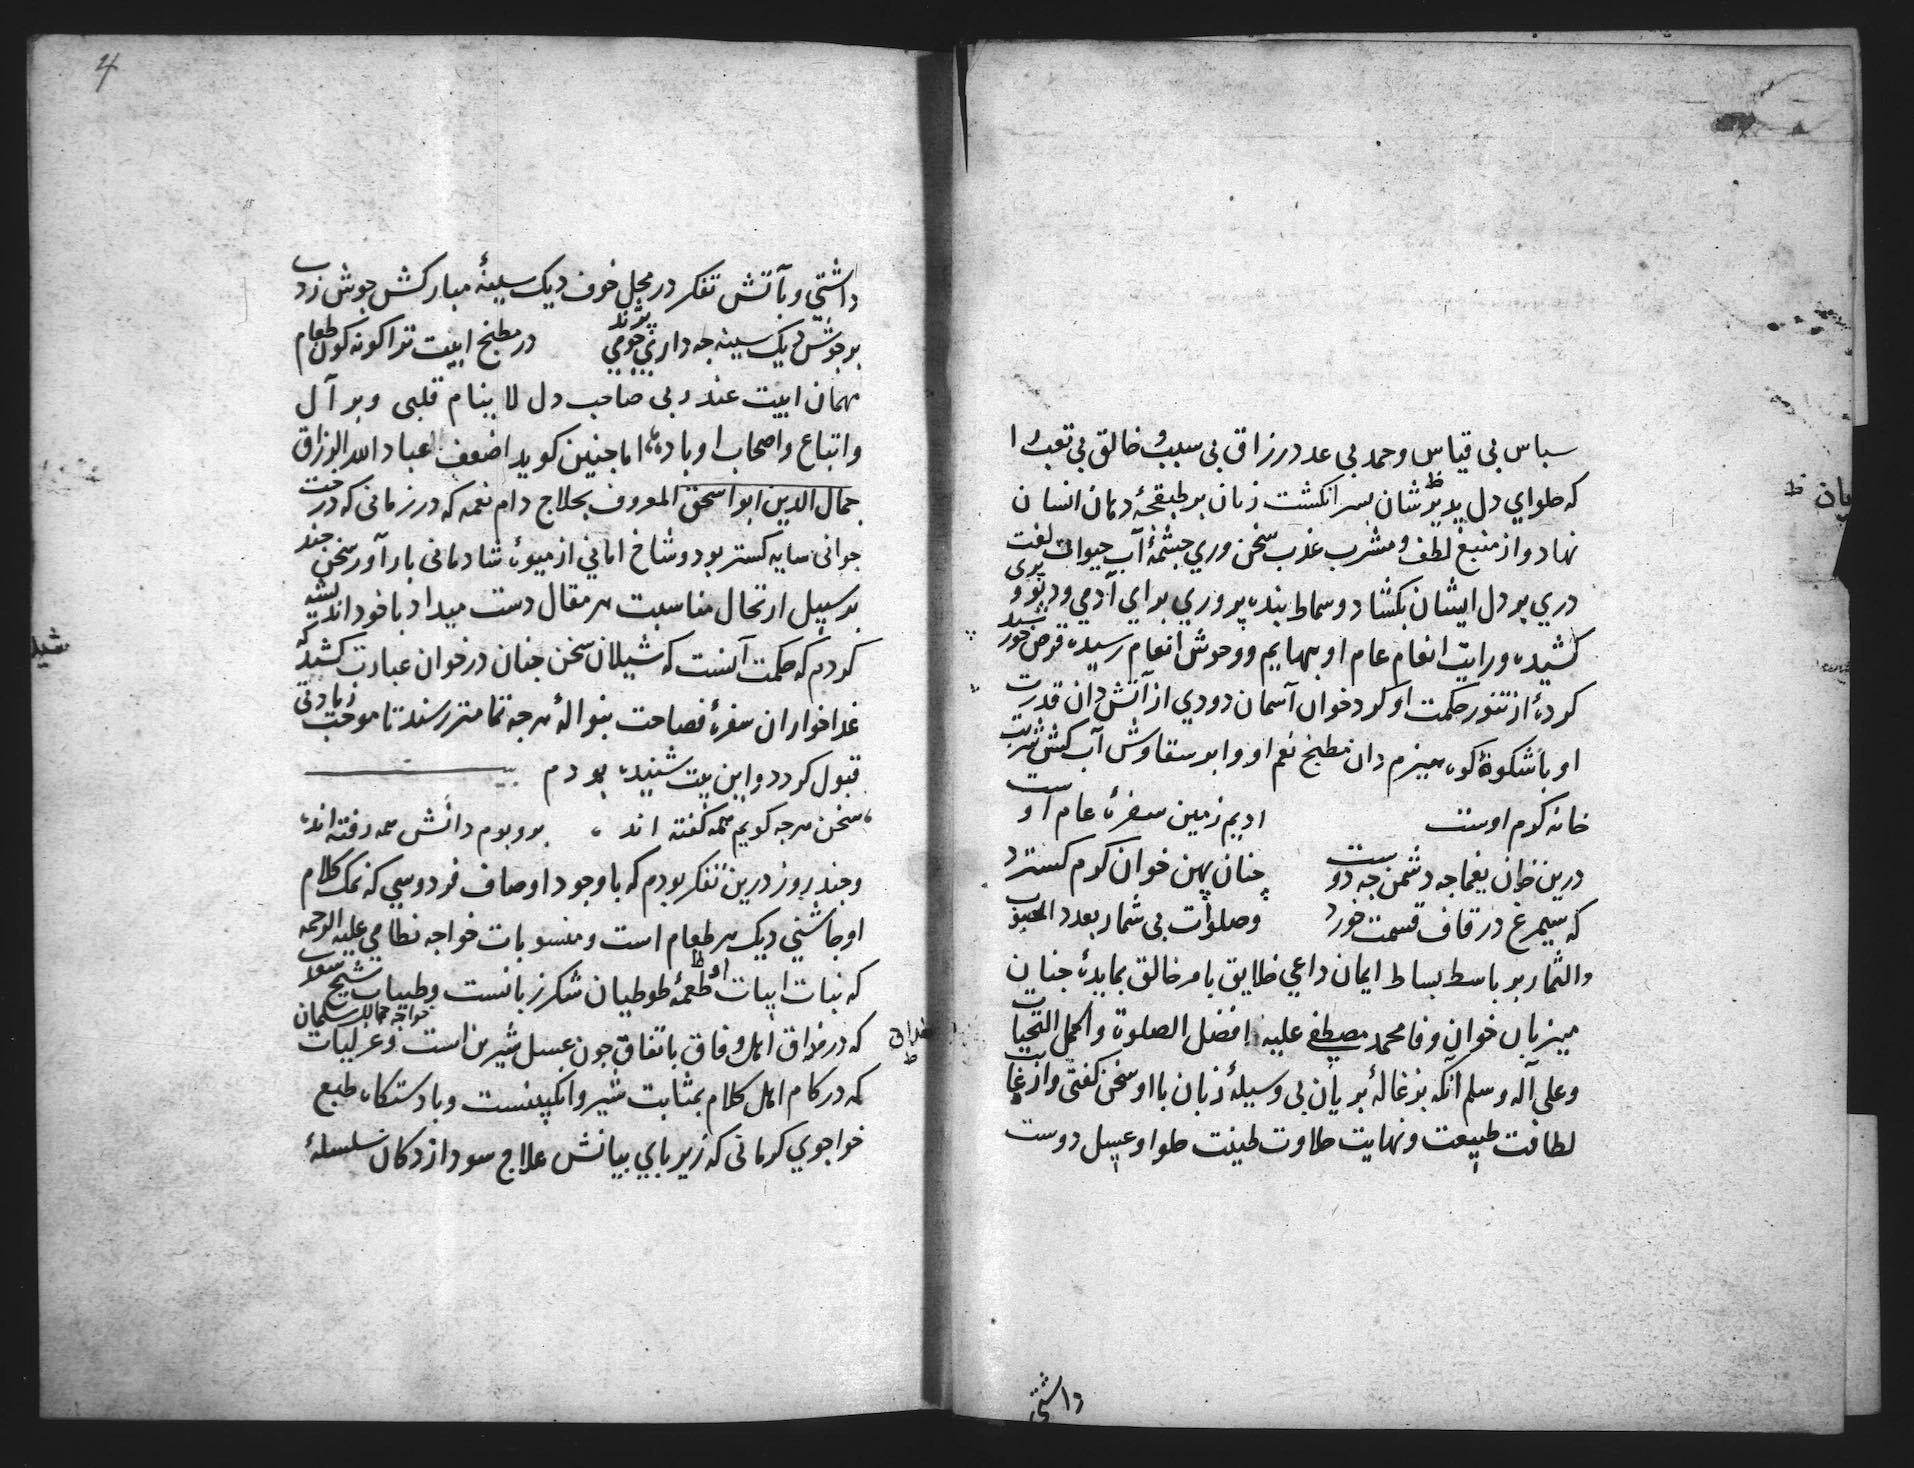 سباس بی قیاس وحمد بی عدد رزاق بی سبب و خالق بی تعب را
که حلوای دل پذیر شان بسر انکشت زبان بر طبقچهٔ دهان انسان
نهاد و از منبع لطف و مشرب عذب سخن وری جشمهٔ آب حیوان لغت
دری بر دل ایشان بکشاد و سماط بنده پروری برای آدمی و دیو و پری
کشیده و رایت انعام عام او ببهایم و وحوش انعام رسیده قرص خورشید
کردهٔ از تنور حکمت او کرد خوان آسمان دودی از آتش دان قدرت
او با شکوهٔ کوه هیزم دان مطبخ نعم او و ابر سقاوش آب کش شربت
خانه کرم اوست
ادیم زمین سفرهٔ عام اوست
درین خوان یغما جه دشمن جه دوست
چنان پهن خوان کرم کسترد
که سیمرغ در قاف قسمت خورد
وصلوات بی شمار بعدد الحبوب
والثمار بر باسط بساط ایمان داعی خلایق بامر خالق بمایدهٔ جنان
میزبان خوان وفا محمد مصطفی علیه افضل الصلوة و اکمل التحیات
وعلی آله وسلم آنکه بزغالهٔ بریان بی وسیلهٔ زبان با او سخن کفتی و از غایت
لطافت طبیعت و نهایت حلاوت طینت حلوا و عسل دوست
داشتی
یان ظ
4
داشتی و بآتش تفکر در محل خوف دیک سینهٔ مبارکش جوش زدی
بر جوش دیک سینه جه داری
در مطبخ ابیت ترا کونه کون طعام
مهمان ابیت عند ربی صاحب دل لا ینام قلبی و بر آل
و اتباع و اصحاب او باد اما جنین کوید اضعف عباد الله الرزاق
جمال الدین ابو اسحق المعروف بحلاج دام نعمه که در زمانی که درخت
جوانی سایه کستر بود و شاخ امانی از میوهٔ شادمانی بار آور سخنی جند
بر سبیل ارتحال مناسبت هر مقال دست میداد با خود اندیشه
کردم که حکمت آنست که شیلان سخن جنان در خوان عبارت کشید که
غداخواران سفرهٔ فصاحت بنوالهٔ هرجه تمامتر رسند تا موجب زیادتی
قبول کردد و این بیت شنیده بودم بیت
سخن هرجه کویم همه کفته اند
بر و بوم دانش همه رفته اند
و جند روز درین تفکر بودم که با وجود اوصاف فردوسی که نمک کلام
او جاشنی دیک هر طعام است و منسوبات خواجه نظامی علیه الرحمه
که نبات ابیات او طعمهٔ طوطیان شکر زبانست و طیبات شیخ سعدی
که در مذاق اهل وفاق باتفاق جون عسل شیرین است و غزلیات خواجه جمال سلمان
که در کام اهل کلام بمثابت شیر و انکبینست و با دستکاه طبع
خواجوی کرمانی که زیربای بیانش علاج سودازدکان سلسلهٔ